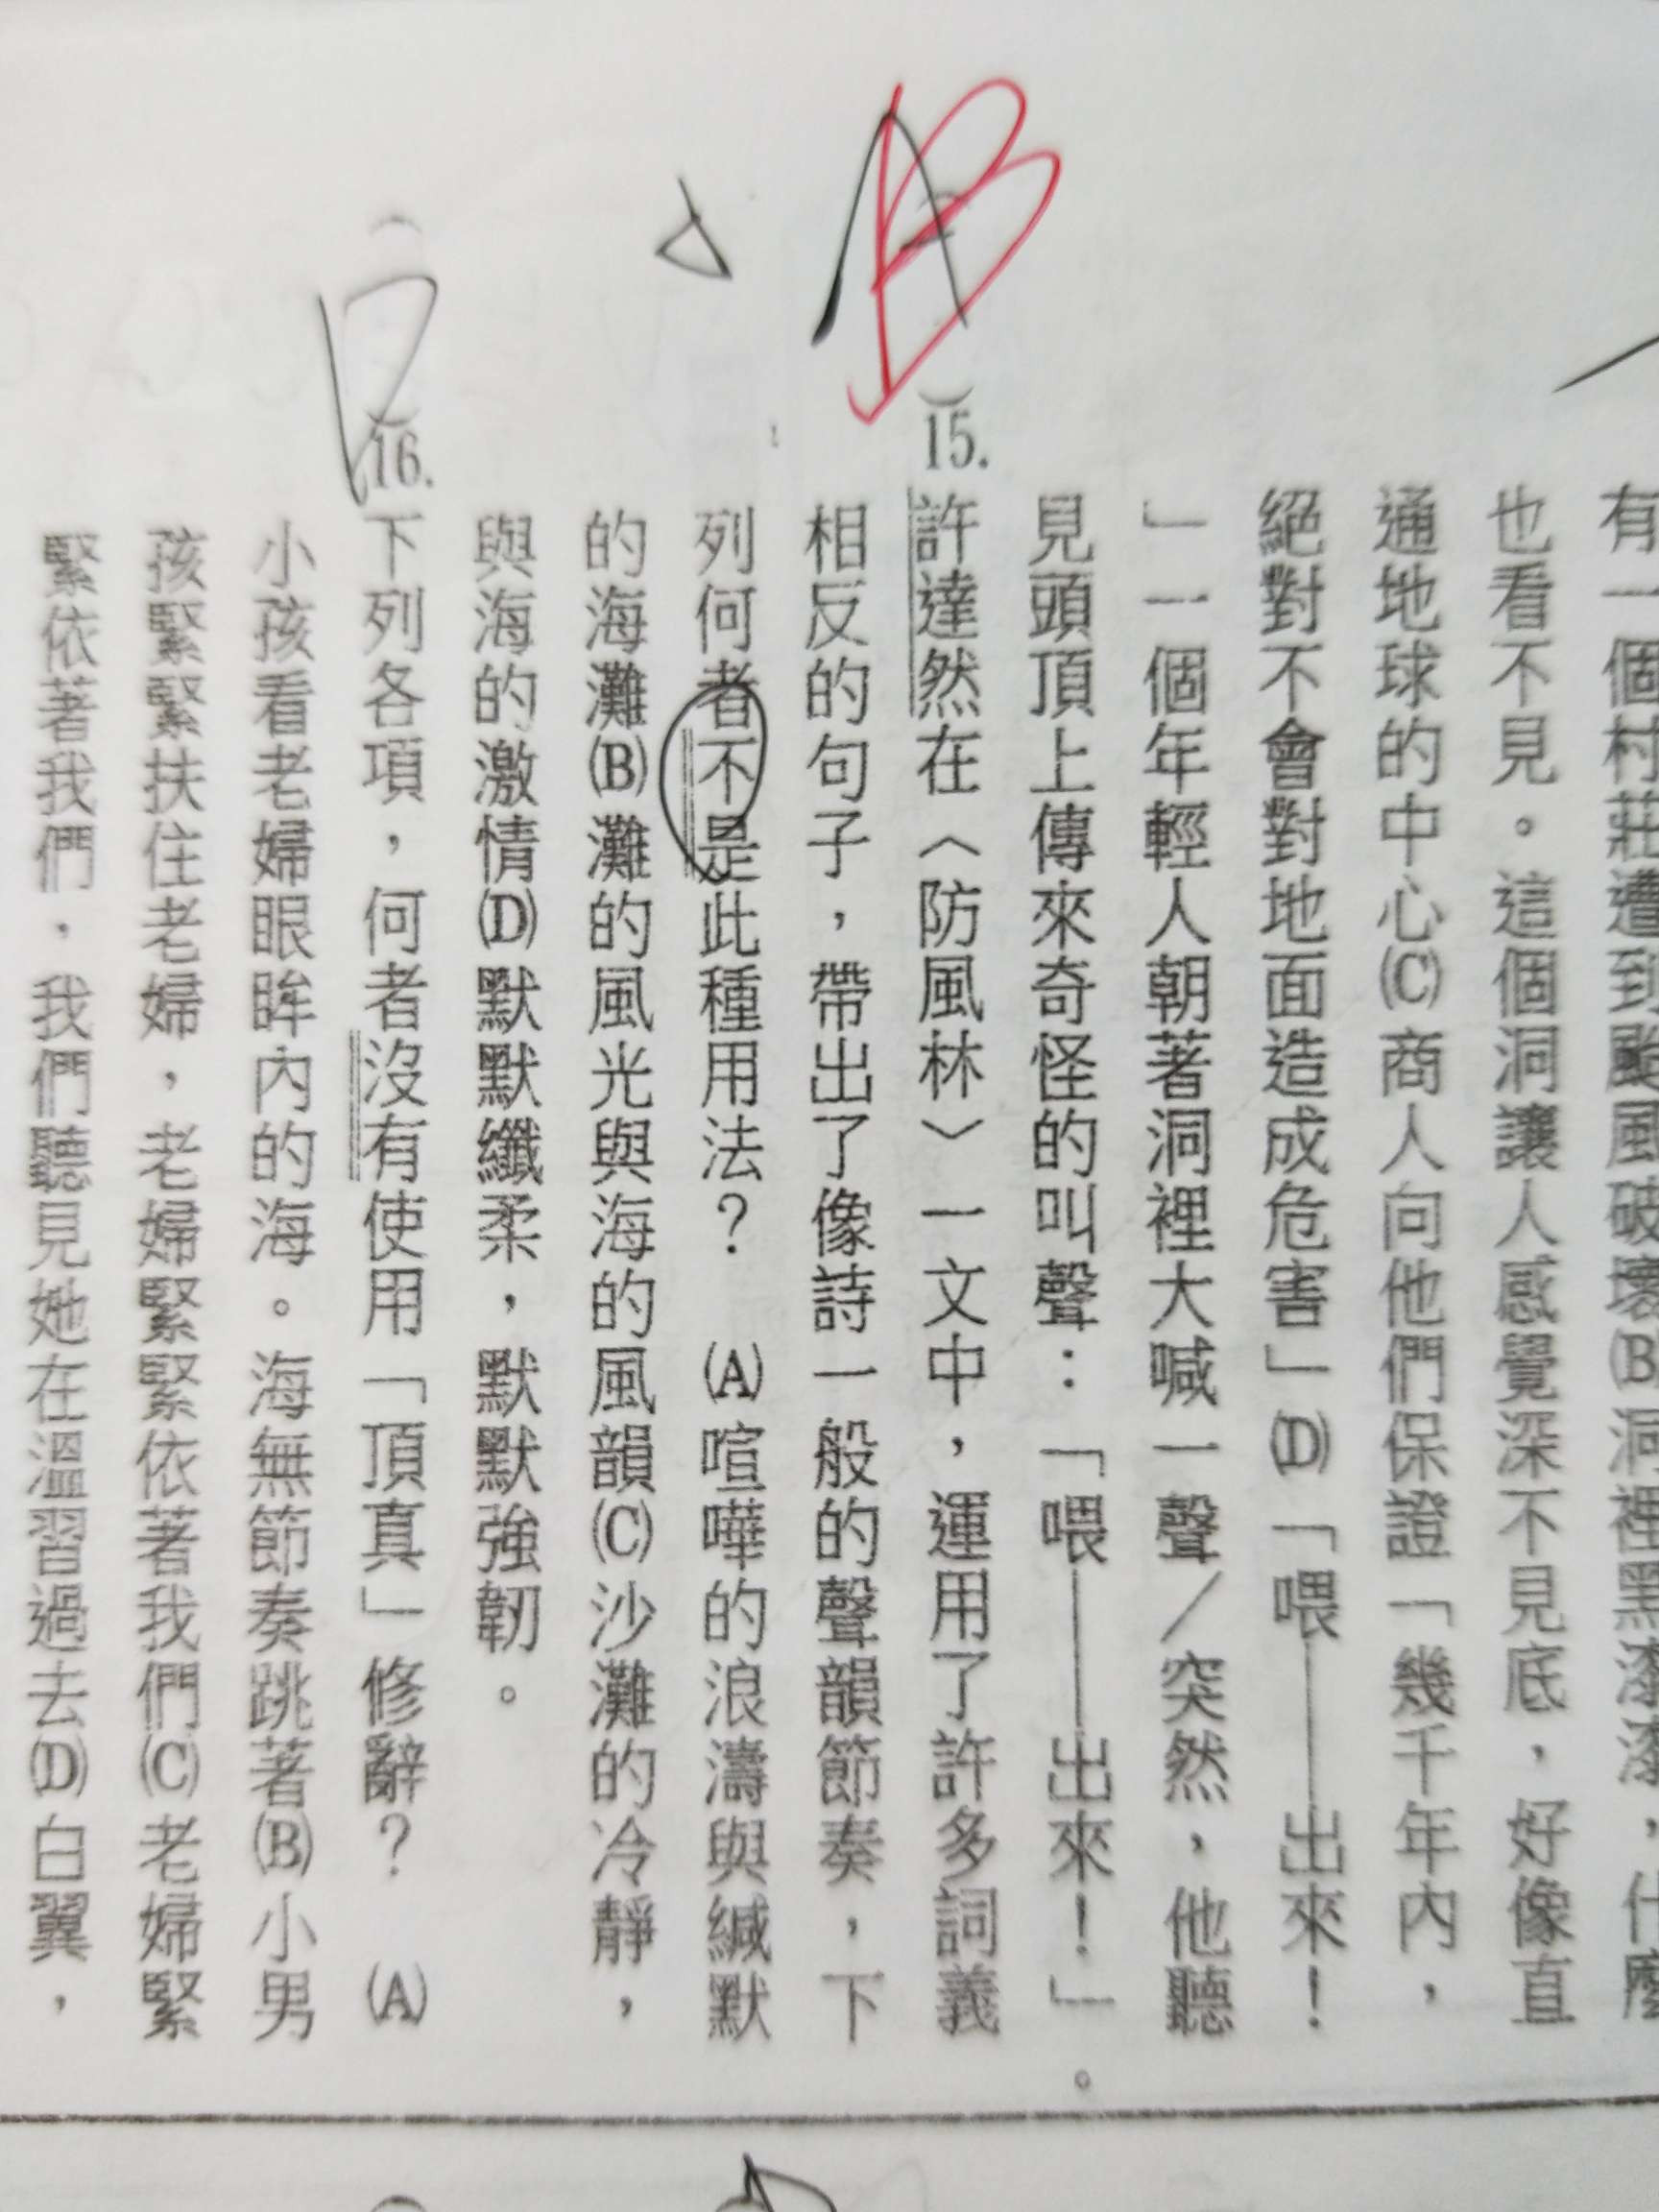 有一個村莊遭到颱風破壞(B)洞裡黑漆漆，什麼
也看不見。這個洞讓人感覺深不見底，好像直
通地球的中心(C)商人向他們保證「幾千年內，
絕對不會對地面造成危害」(D)「喂——出來！
」一個年輕人朝著洞裡大喊一聲／突然，他聽
見頭頂上傳來奇怪的叫聲：「喂——出來！」。
AB
( )15.許達然在〈防風林〉一文中，運用了許多詞義
相反的句子，帶出了像詩一般的聲韻節奏，下
列何者不是此種用法？ (A)喧嘩的浪濤與緘默
的海灘(B)灘的風光與海的風韻(C)沙灘的冷靜，
與海的激情(D)默默纖柔，默默強韌。
( )16.下列各項，何者沒有使用「頂真」修辭？ (A)
小孩看老婦眼眸內的海。海無節奏跳著(B)小男
孩緊緊扶住老婦，老婦緊緊依著我們(C)老婦緊
緊依著我們，我們聽見她在溫習過去(D)白翼，